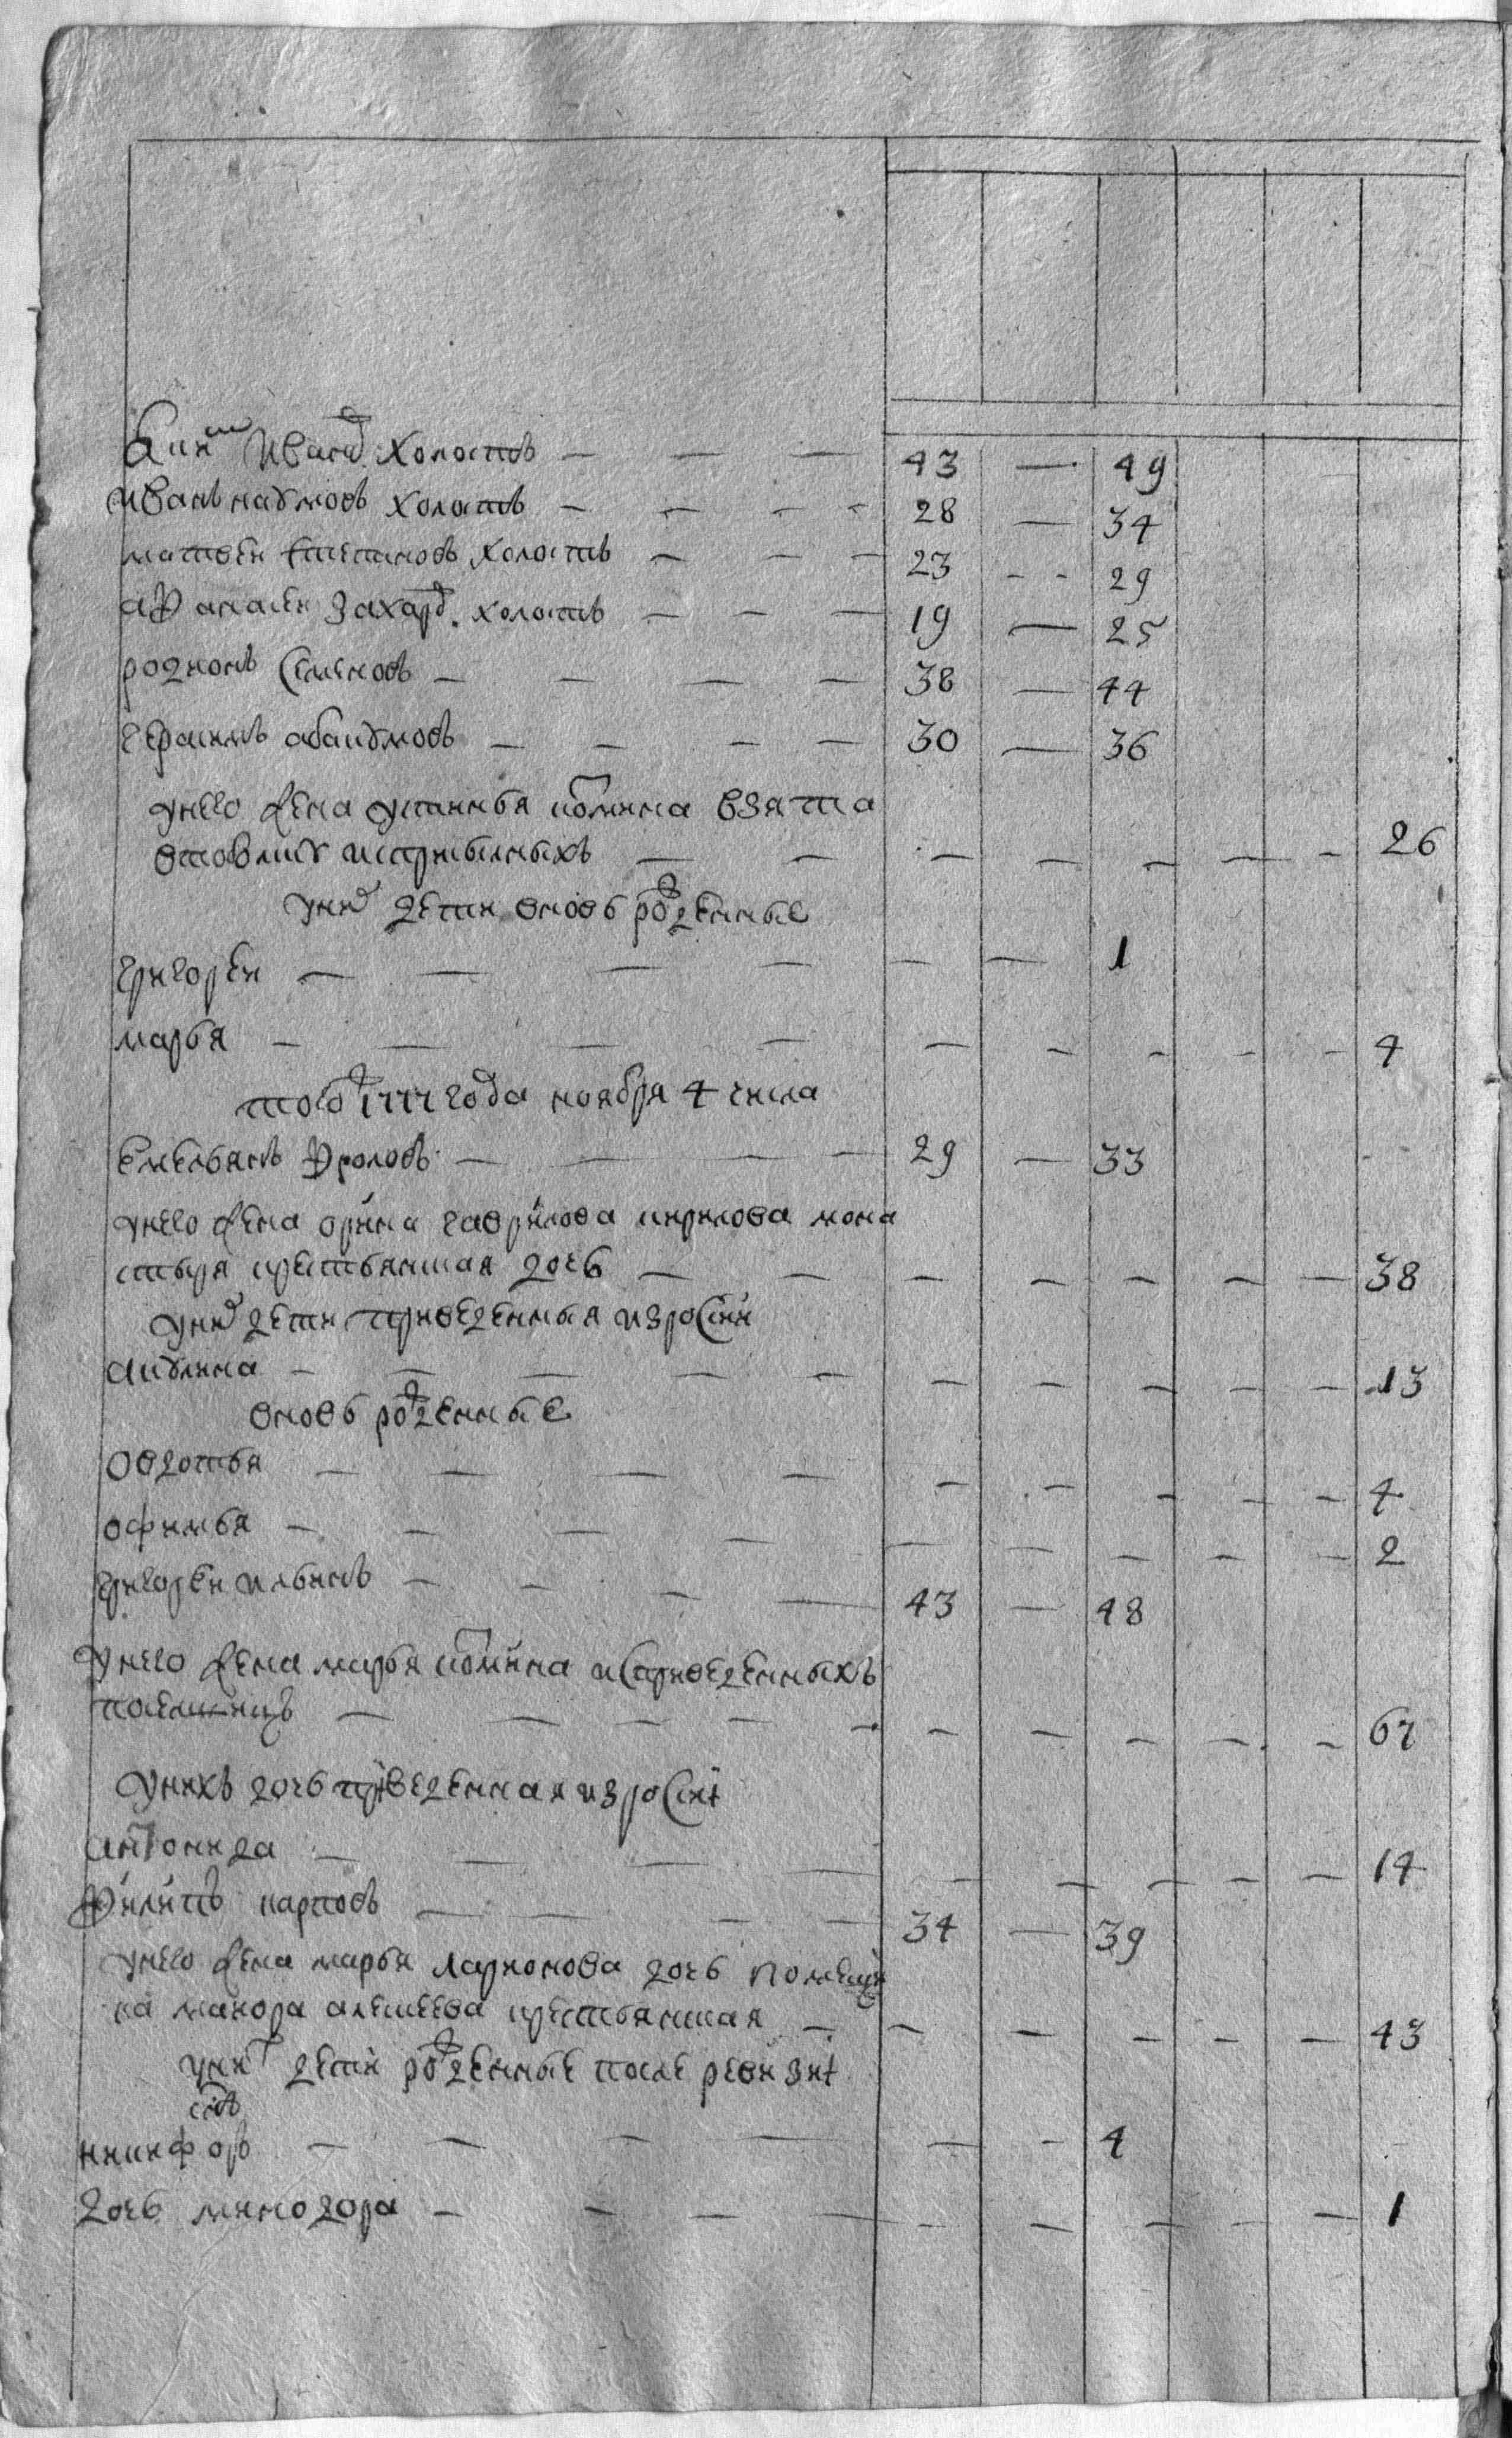 Иванов холостъ — — — 43 — 49
иванъ наумовъ холостъ — — — — 28 — 34
матвеи степановъ холостъ — — — 23 — — 29
афанасеи захаров. холостъ — — — 19 — 25
родионъ семеновъ — — — — 38 — 44
герасимъ абакумовъ — — — — 30 — 36
у него жена устинья фомина взята
исприбылныхъ — — — — — — — 26
у них дети вновь рожденные
григореи — — — — — — 1
марья — — — — — — — — — 4
того ж 1777 года ноября 4 числа
емельянъ фроловъ — — — — 29 — 33
у него жена орина гаврилова кирилова мона
стыря крестьянская дочь — — — — — — — 38
у них дети привезенныя из росии
акулина — — — — — — — — — — 13
вновь рожденные
овдотья — — — — — — — — — 4
офимья — — — — — — — — — 2
григореи ильинъ — — — — 43 — 48
у него жена марья фомина испривезенныхъ
посельщицъ — — — — — — — — — — 67
у нихъ дочь привезенная из росиі
антонида — — — — — — — — — 14
филипъ карповъ — — — — 34 — 39
у него жена марья ларионова дочь помещи
ка маиора алексеева крестьянская — — — — — — 43
у них дети рожденные после ревизиі
сынъ
никифоръ — — — — — — 4
дочь минодора — — — — — — — — — 1